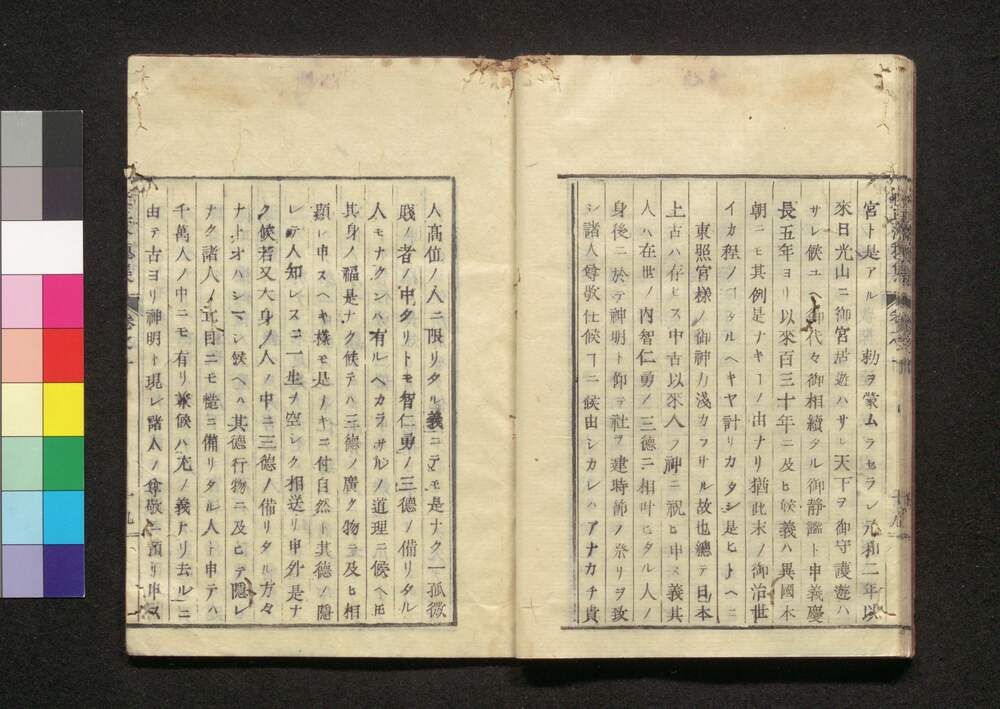 宮ト是アル 勅ヲ蒙ムラセラレ元和二年以
來日光山ニ御宮居遊ハサレ天下ヲ御守護遊ハ
サレ候ユヘ御代々御相續タル御靜謐ト申義慶
長五年ヨリ以來百三十年ニ及ヒ候義ハ異國本
朝ニモ其例是ナキヿノ由ナリ猶此末ノ御治世
イカ程ノヿタルヘキヤ計リカタシ是ヒトヘニ
東照宮樣ノ御神力淺カラサル故也總テ日本
上古ハ存セス中古以來人ヲ神ニ祝ヒ申ス義其
人ハ在世ノ内智仁勇ノ三德ニ相叶ヒタル人ノ
身後ニ於テ神明ト仰テ社ヲ建時節ノ祭リヲ致
シ諸人尊敬仕候ヿニ候由シカレハアナカチ貴
人高位ノ人ニ限リタル義ニテモ是ナク一孤微
賤ノ者ノ中タリトモ智仁勇ノ三德ノ備リタル
人モナクンハ有ルヘカラサルノ道理ニ候ヘ𪜈
其身ノ福是ナク候テハ三德ノ廣ク物ニ及ヒ相
顯レ申スヘキ樣モ是ナキニ付自然ト其德ノ隱
レテ人知レスニ一生ヲ空シク相送リ申外是ナ
ク候若又大身ノ人ノ中ニ三德ノ備リタル方々
ナトオハシマシ候ヘハ其德行物ニ及ヒテ隱レ
ナク諸人ノ耳目ニモ慥ニ備リタル人ト申テハ
千萬人ノ中ニモ有リ兼候ハ尤ノ義アリ去ルニ
由テ古ヨリ神明ト現レ諸人ノ尊敬ニ預リ申ス
十九